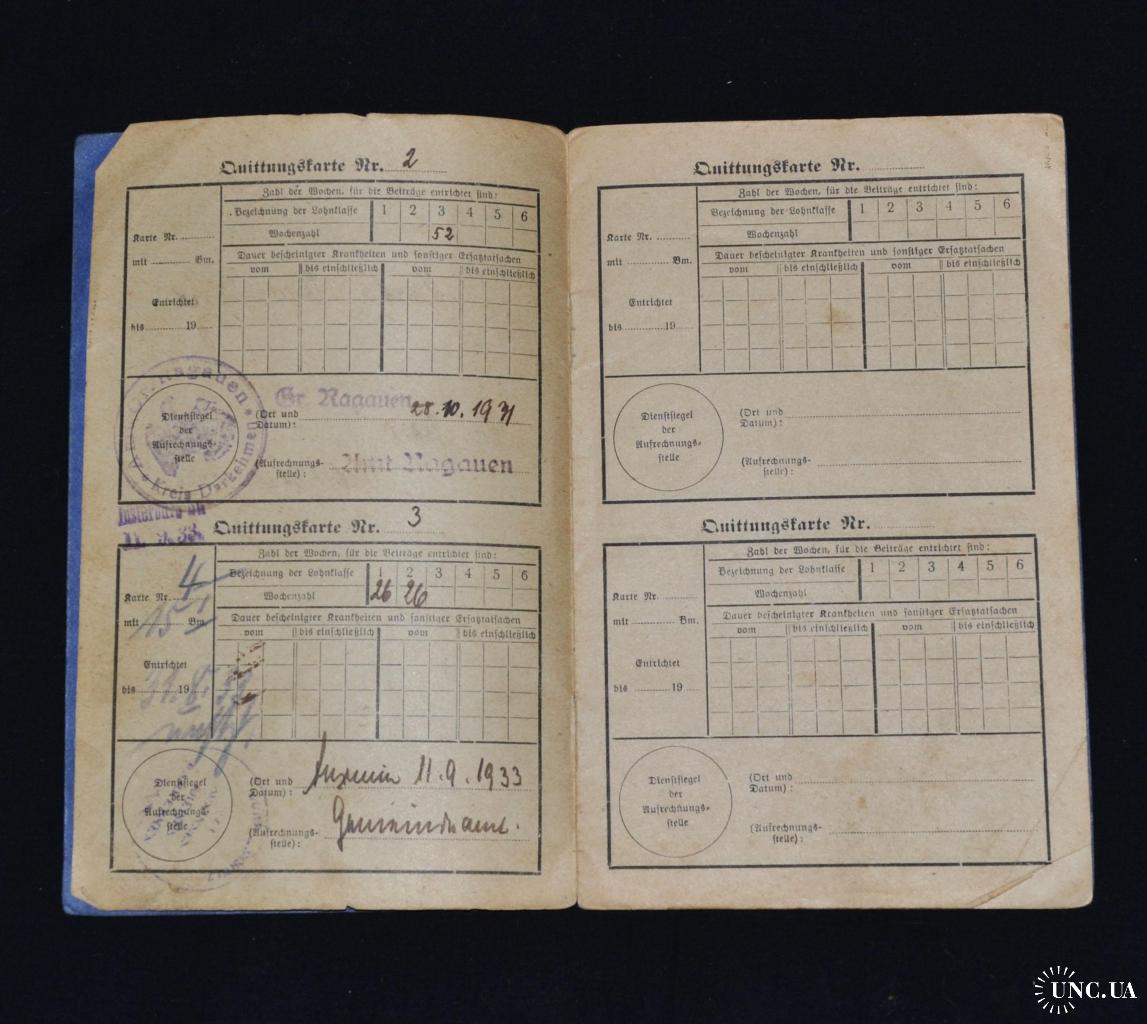 Quittungskarte Nr. 2
Zahl der Wochen, für die Beiträge entrichtet sind:
Bezeichnung der Lohnklasse 1 2 3 4 5 6
Wochenzahl 52
Karte Nr.
mit Bm.
Dauer bescheinigter Krankheiten und sonstiger Ersatztatsachen
vom bis einschließlich vom bis einschließlich
Entrichtet
bis 19
Gr. Ragauen
Kreis Darkehmen
Dienstsiegel
der
Aufrechnungs-
stelle
(Ort und
Datum): Gr. Ragauen 28.10.1931
(Aufrechnungs-
stelle): Amt Ragauen
Insterburg
11. 9. 33.
Quittungskarte Nr. 3
Zahl der Wochen, für die Beiträge entrichtet sind:
Bezeichnung der Lohnklasse 1 2 3 4 5 6
Wochenzahl 26 26
Karte Nr. 4
mit 15 Bm.
Dauer bescheinigter Krankheiten und sonstiger Ersatztatsachen
vom bis einschließlich vom bis einschließlich
Entrichtet
bis 19
Dienstsiegel
der
Aufrechnungs-
stelle
(Ort und
Datum): 11.9.1933
(Aufrechnungs-
stelle): Gemeindeamt.
Quittungskarte Nr.
Zahl der Wochen, für die Beiträge entrichtet sind:
Bezeichnung der Lohnklasse 1 2 3 4 5 6
Wochenzahl
Karte Nr.
mit Bm.
Dauer bescheinigter Krankheiten und sonstiger Ersatztatsachen
vom bis einschließlich vom bis einschließlich
Entrichtet
bis 19
Dienstsiegel
der
Aufrechnungs-
stelle
(Ort und
Datum):
(Aufrechnungs-
stelle):
Quittungskarte Nr.
Zahl der Wochen, für die Beiträge entrichtet sind:
Bezeichnung der Lohnklasse 1 2 3 4 5 6
Wochenzahl
Karte Nr.
mit Bm.
Dauer bescheinigter Krankheiten und sonstiger Ersatztatsachen
vom bis einschließlich vom bis einschließlich
Entrichtet
bis 19
Dienstsiegel
der
Aufrechnungs-
stelle
(Ort und
Datum):
(Aufrechnungs-
stelle):
UNC.UA